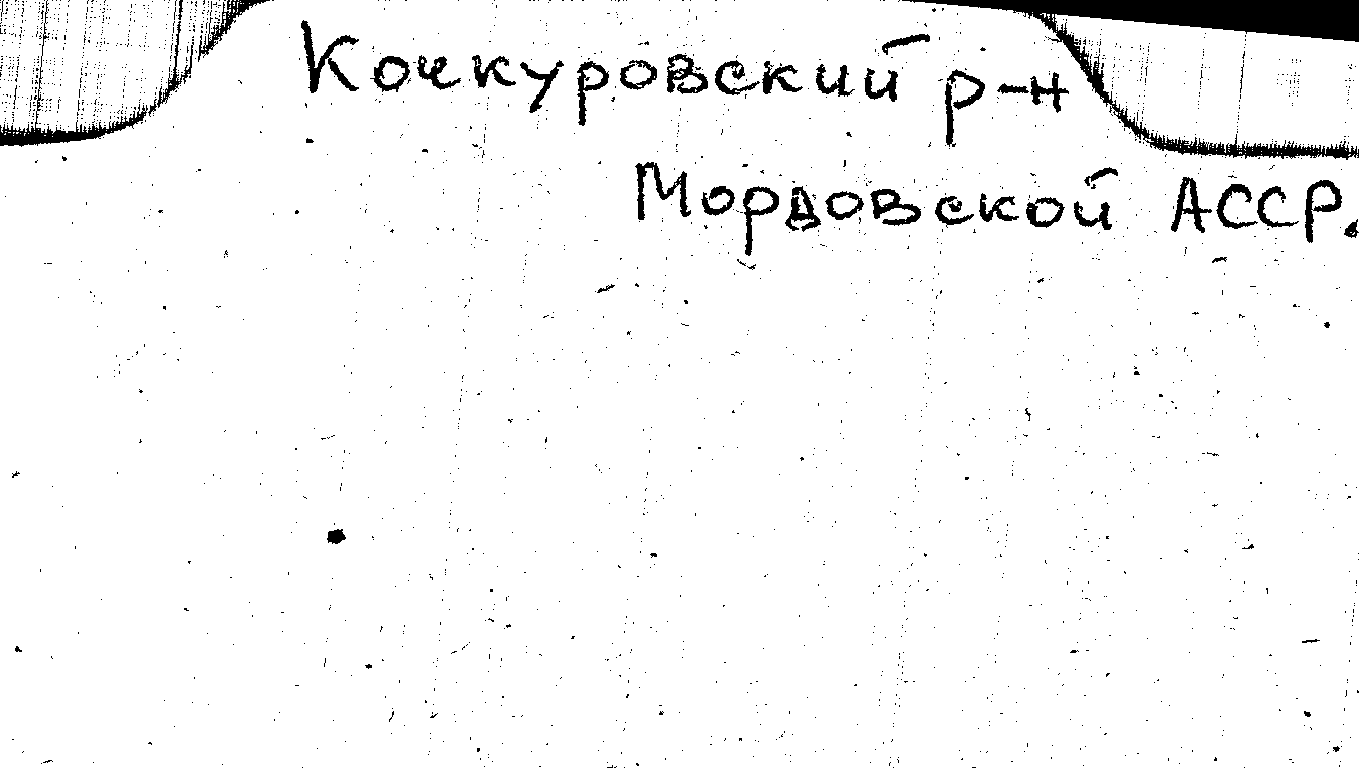 Кочкуровский р-н
Мордовской АССР.